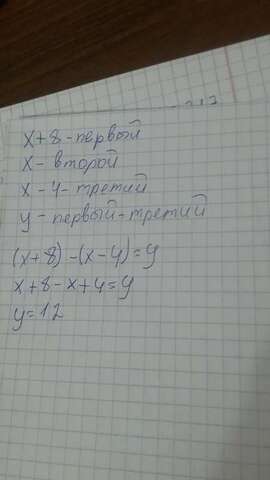 x+8-первый
x-второй
x-4-третий
y-первый-третий
(x+8)-(x-4)=y
x+8-x+4=y
y=12